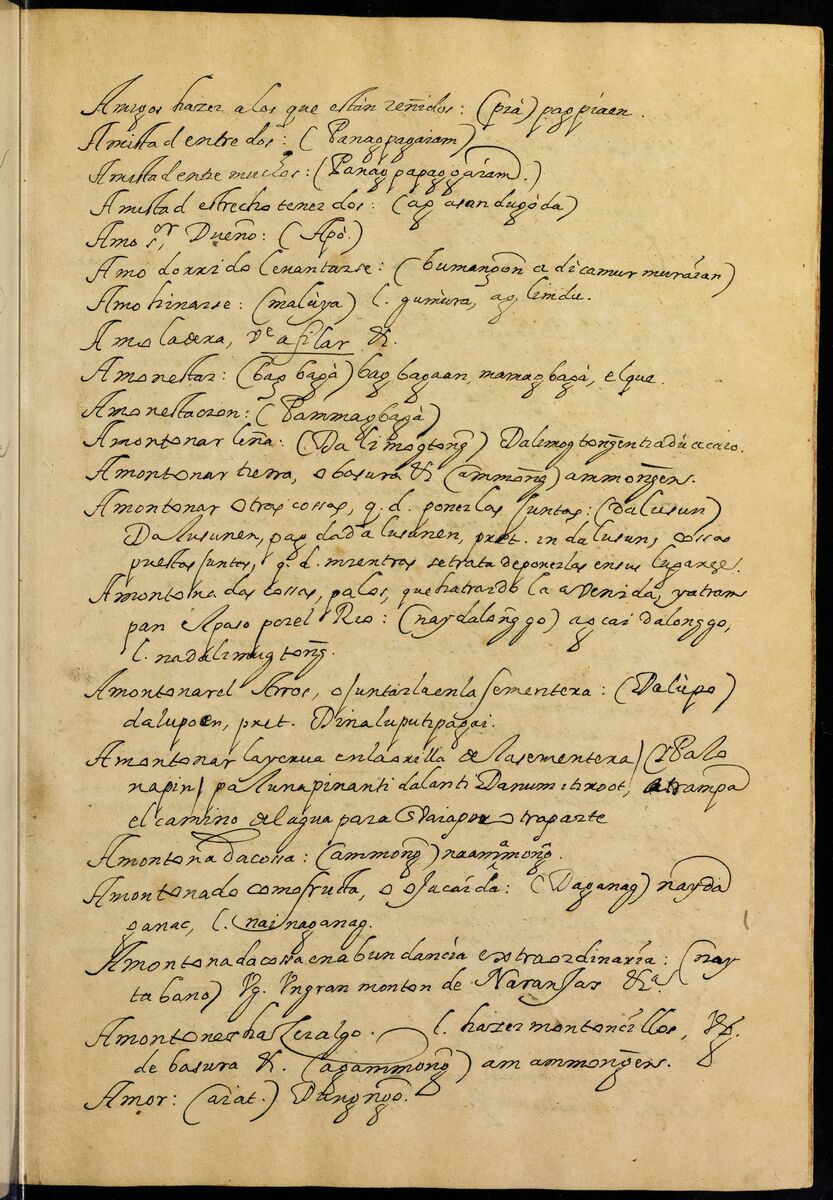 Amigos hazer alos que están reñidos: (pià) pagpiaen.
Amistad entre dos: (Panagpagaiam)
Amistad entre muchos: (Panagpapaggaiam.)
Amistad estrecho tener dos: (ag asandugóda)
Amo sor, Dueño: (Apò.)
Amodorrido levantarse: (bumangon a dicamur muraian)
Amohinarse: (malùya) l. gumùra, ag limdu.
Amoladera, ve afilar &.
Amonestar: (bag bagà) bag bagaan, mamagbagà, elque.
Amonestacion: (Pammagbagà)
Amontonar leña: (Dalimogtong) Dalimogtongentiaducacaio.
Amontonar tierra, o basura & (ammóng) ammongens.
Amontonar otras cossas, q. d. ponerlas juntas: (dalusun)
Dalusunen, pag dadalusunen, pret. indalusun, cossas
puestas juntas, q. d. mientras setrata deponerlas ensus lugares.
Amontonadas cossas, palos, quehatraido la avenida, yatram
pan elpaso porel Rio: (naydalonggo) agcai dalonggo,
l. nadalimugtong.
Amontonarel Arros, ojuntarlaenla sementera: (Dalùpo)
dalupoen, pret. Dinaluputipagai.
Amontonar layerva enlaorilla delasementera/(Palo
napin/ palunapinanti dalanti Danum itiroot, atrampa
el camino delagua para vaiapor otraparte
Amontonadacossa: (ammong) naammong.
Amontonado comofruta, o ojacaída: (Daganag) nayda
ganac, l. nainaganag.
Amontonadacossa enabundancia extraordinaria: (nay
tabano) Vg. Vngran monton de Naranjas &a.
Amontones hazeralgo. l. hazer montoncillos, Vg.
de basura &. (agammong) am ammongens.
Amor: (aiat.) Dungngo.